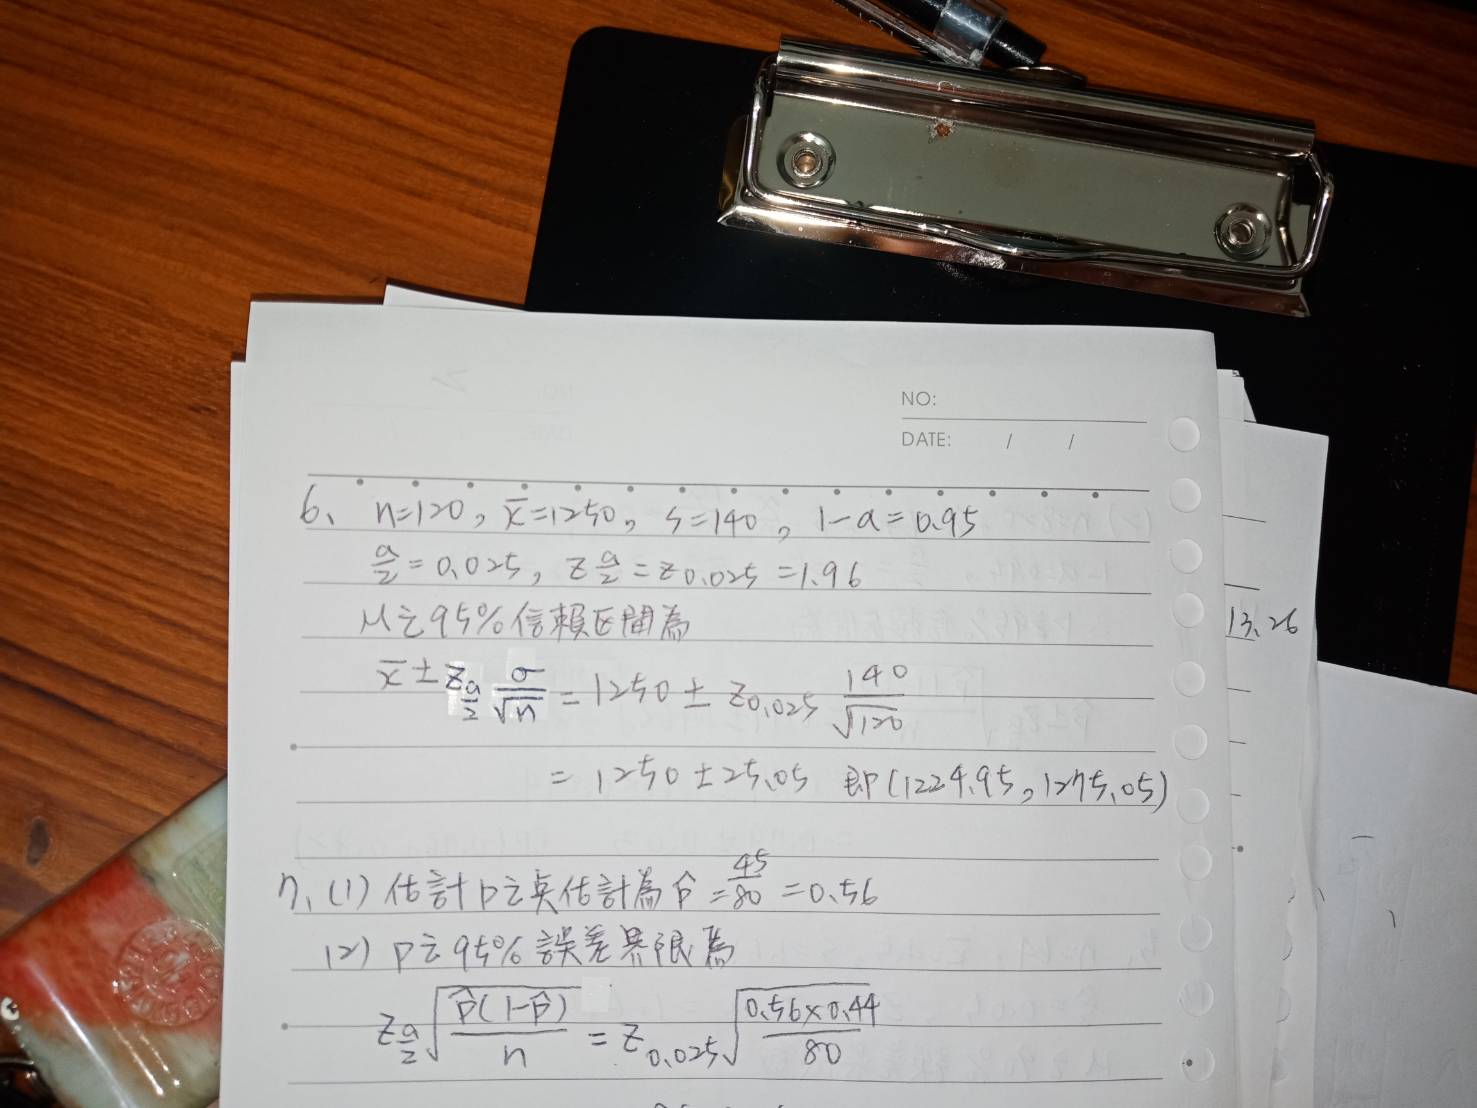 NO:
DATE: / /
6、 n=120, x̄=1250, s=140, 1-α=0.95
α/2=0.025, z α/2=z0.025=1.96
μ之95%信賴區間為
x̄±z α/2 σ/√n=1250±z0.025 140/√120
=1250±25.05 即(1224.95, 1275.05)
13.26
7、(1) 估計p之點估計為p̂=45/80=0.56
(2) p之95%誤差界限為
z α/2 √(p̂(1-p̂)/n)=z0.025 √(0.56×0.44/80)